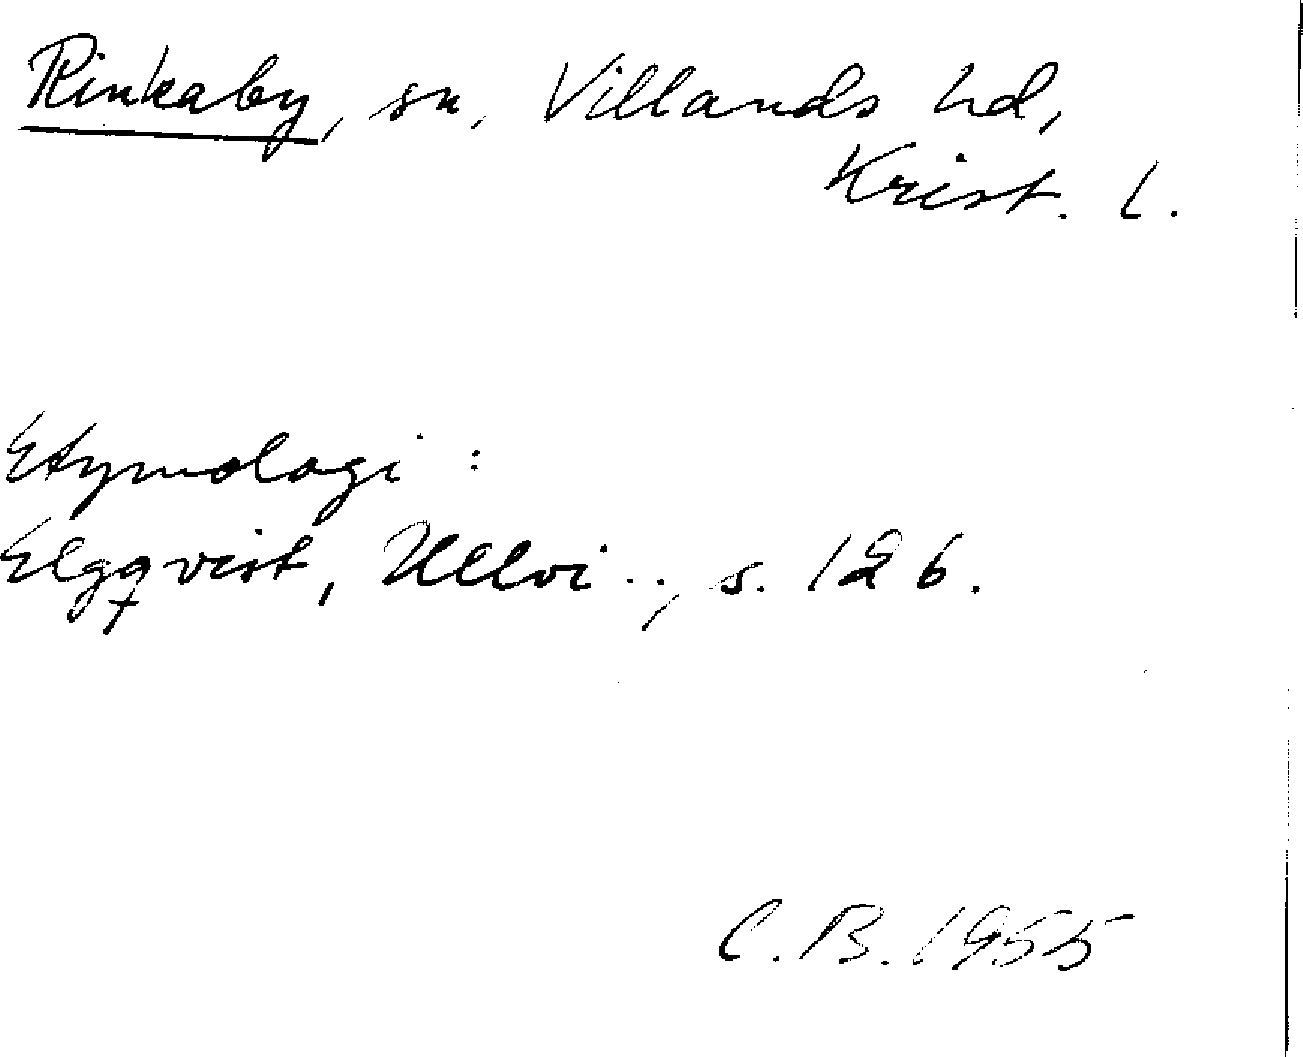 Rinkaby, sn, Villands hd,
Krist. l.
Etymologi :
Elgqvist, Ullvi.., s. 126.
C.B. 1955